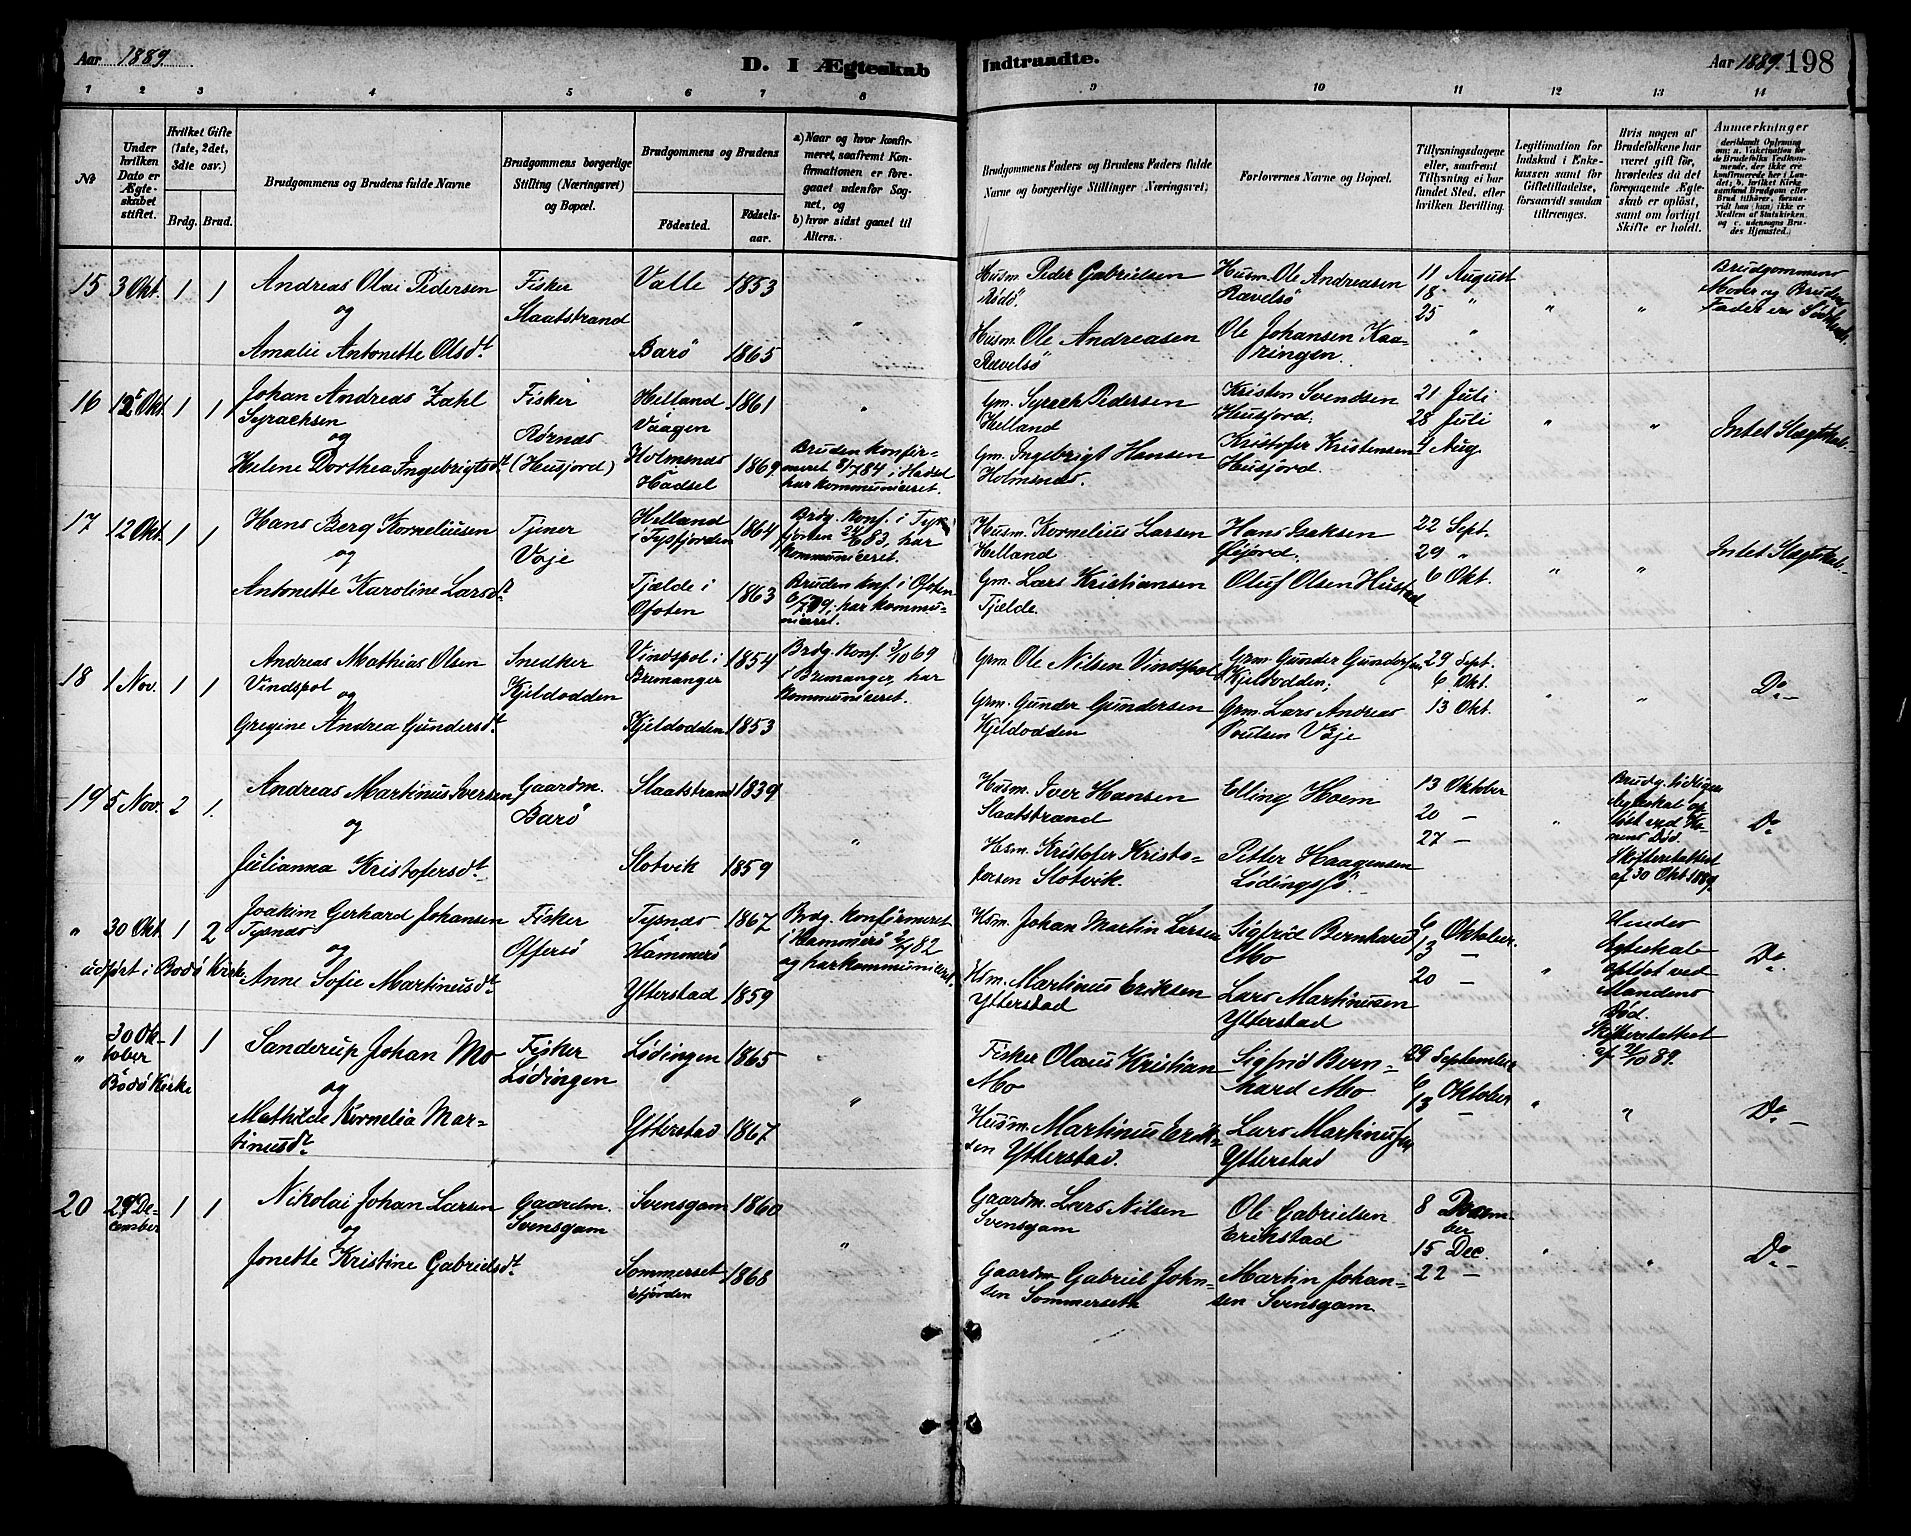 Aar 1889.
D. I Ægteskab
Indtraadte.
Aar 1889. 198
1 2 3 4 5 6 7 8 9 10 11 12 13 14
No
Under hvilken Dato er Ægteskabet stiftet.
Hvilket Gifte (1ste, 2det, 3die osv.)
Brdg. Brud.
Brudgommens og Brudens fulde Navne
Brudgommens borgerlige Stilling (Næringsvei) og Bopæl.
Brudgommens og Brudens
Fødested.
Fødselsaar.
a) Naar og hvor konfirmeret, saafremt Konfirmationen er foregaaet udenfor Sognet, og
b) hvor sidst gaaet til Alters.
Brudgommens Faders og Brudens Faders fulde Navne og borgerlige Stillinger (Næringsvei)
Forlovernes Navne og Bopæl.
Tillysningsdagene eller, saafremt Tillysning ei har fundet Sted, efter hvilken Bevilling.
Legitimation for Indskud i Enkekassen samt for Giftetilladelse, forsaavidt saadan tiltrænges.
Hvis nogen af Brudefolkene har været gift før, hvorledes da det foregaaende Ægteskab er opløst, samt om lovligt Skifte er holdt.
Anmærkninger
15 3 Okt. 1 1
Andreas Olai Pedersen
og
Amalie Antonette Olsdt.
Fisker
Slaatstrand
Valle 1853
Barø 1865
"
Husm. Peder Gabrielsen
Rødø.
Husm. Ole Andreasen
Rævelsø
Husm. Ole Andreasen
Rævelsø
Ole Johansen Kaa-
ringen.
11 August
18 "
25 "
" "
Brudgommens
Moder og Brudens
Fader er Sødskende.
16 12 Okt. 1 1
Johan Andreas Zahl
Syrachsen
og
Helene Dorthea Ingebrigtsdt.
Fisker
Rørnæs
(Husjord)
Helland
Vaagen 1861
Holmsnæs
Hadsel 1869
"
Bruden konfir-
meret 8/7 84 i Hadsel
har kommuniceret.
Gm. Syrach Pedersen
Helland
Gm. Ingebrigt Hansen
Holmsnæs.
Kristen Svendsen
Husjord.
Kristofer Kristensen
Husjord.
21 Juli
28 Juli
4 Aug.
" "
Intet Slægtskab.
17 12 Okt. 1 1
Hans Berg Korneliusen
og
Antonette Karoline Larsdt.
Tjener
Vaje
Helland
i Tysfjorden 1864
Tjælde i
Ofoten 1863
Brdg. konf. i Tys-
fjorden 24/6 83, har
kommuniceret.
Bruden konf. i Ofoten
6/7 79, har kommu-
niceret.
Husm. Kornelius Larsen
Helland.
Gm. Lars Kristiansen
Tjælde.
Hans Isaksen
Efjord.
Oluf Olsen Hustad
22 Sept.
29 "
6 Okt.
" "
Intet Slægtskab.
18 1 Nov. 1 1
Andreas Mathias Olsen
Vindspol
og
Gregine Andrea Gundersdt.
Snedker
Kjeldodden
Vindspol i
Bremanger 1854
Kjeldodden 1853
Brdg. konf. 3/10 69
i Bremanger, har
kommuniceret.
Grm. Ole Nilsen Vindspol
Grm. Gunder Gundersen
Kjeldodden
Grm. Gunder Gundersen
Kjeldodden;
Grm. Lars Andreas
Poulsen Vaje
29 Sept.
6 Okt.
13 Okt.
" "
Do. –
19 5 Nov. 2 1.
Andreas Martinus Iversen
og
Julianna Kristofersdt.
Gaardm.
Barø
Slaatstrand 1839
Slotvik 1859
"
Husm. Iver Hansen
Slaatstrand
Hsm. Kristofer Kristo-
fersen Slotvik.
Elling Hoem
Petter Haagensen
Lødingsjø.
13 Oktober
20 –
27 –
"
Brudg. tidligere
Ægteskab op-
løst ved Ko-
nens Død.
Skifteretsattest
af 30 Okt. 1889.
Do.
" 30 Okt. 1 2
udført i Bodø Kirke
Joakim Gerhard Johansen
Tysnæs
og
Anne Sofie Martinusdt.
Fisker
Offersø
Tysnæs
Hammerø 1867
Ytterstad 1859
Brdg. konfirmeret
i Hammerø 2/7 82
og har kommuniceret.
Hsm. Johan Martin Larsen
Hsm. Martinus Eriksen
Ytterstad
Sigfrid Bernhard
Mo
Lars Martinusen
Ytterstad
6 Oktober.
13 –
20 –
"
Hendes
Ægteskab
opløst ved
Mandens
Død.
Skifteretsattest
af 2/10 89.
Do.
" 30 Ok-
tober
Bodø Kirke 1 1
Sanderup Johan Mo
og
Mathilde Kornelia Mar-
tinusdt.
Fisker
Lødingen
Lødingen 1865
Ytterstad 1867
"
Fisker Olaus Kristian
Mo
Husm. Martinus Erik-
sen Ytterstad.
Sigfrid Bern-
hard Mo
Lars Martinussen
Ytterstad
29 September
6 Oktober
13 –
" "
Do. –
20 29 De-
cember 1 1
Nikolai Johan Larsen
og
Jonette Kristine Gabrielsdt.
Gaardm.
Svensgam
Svensgam 1860
Sommerset
Efjorden 1868
"
Gaardm. Lars Nilsen
Svensgam
Gaardm. Gabriel John-
sen Sommerseth
Ole Gabrielsen
Erikstad
Martin Johan-
sen Svensgam
8 Decem-
ber
15 Dec.
22 –
" "
Do. –